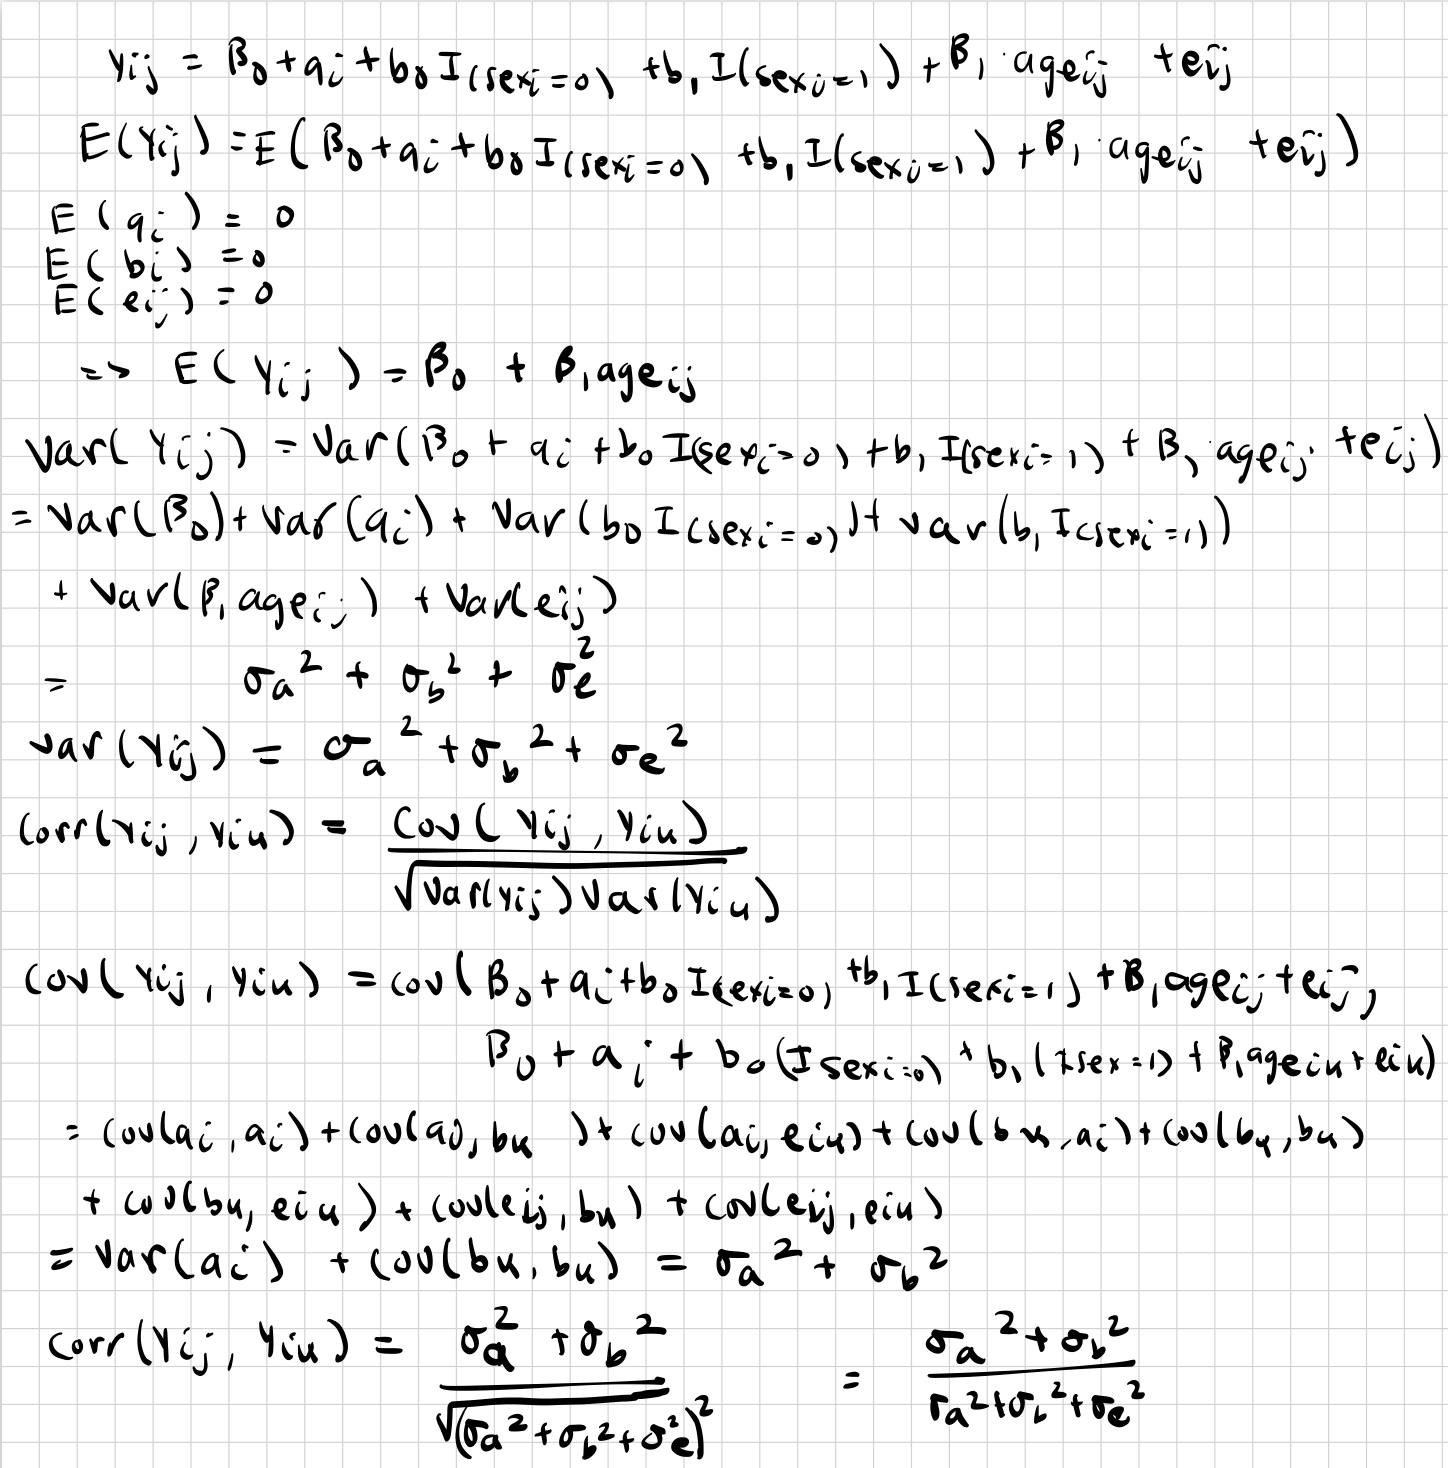 Yij = β0 + ai + b0 I(sexi=0) + b1 I(sexi=1) + β1 · ageij + eij
E(Yij) = E(β0 + ai + b0 I(sexi=0) + b1 I(sexi=1) + β1 · ageij + eij)
E(ai) = 0
E(bi) = 0
E(eij) = 0
=> E(Yij) = β0 + β1 ageij
Var(Yij) = Var(β0 + ai + b0 I(sexi=0) + b1 I(sexi=1) + β1 · ageij + eij)
= Var(β0) + Var(ai) + Var(b0 I(sexi=0)) + Var(b1 I(sexi=1))
+ Var(β1 ageij) + Var(eij)
= σa² + σb² + σe²
Var(Yij) = σa² + σb² + σe²
Corr(Yij, Yik) = Cov(Yij, Yik) / √Var(Yij) Var(Yik)
Cov(Yij, Yik) = Cov(β0 + ai + b0 I(sexi=0) + b1 I(sexi=1) + β1 ageij + eij,
β0 + ai + b0(I sexi=0) + b1(I sex=1) + β1 ageik + eik)
= Cov(ai, ai) + Cov(ai, bk) + Cov(ai, eik) + Cov(bk, ai) + Cov(bk, bk)
+ Cov(bk, eik) + Cov(eij, bk) + Cov(eij, eik)
= Var(ai) + Cov(bk, bk) = σa² + σb²
Corr(Yij, Yik) = σa² + σb² / √(σa² + σb² + σe²)² = σa² + σb² / σa² + σb² + σe²